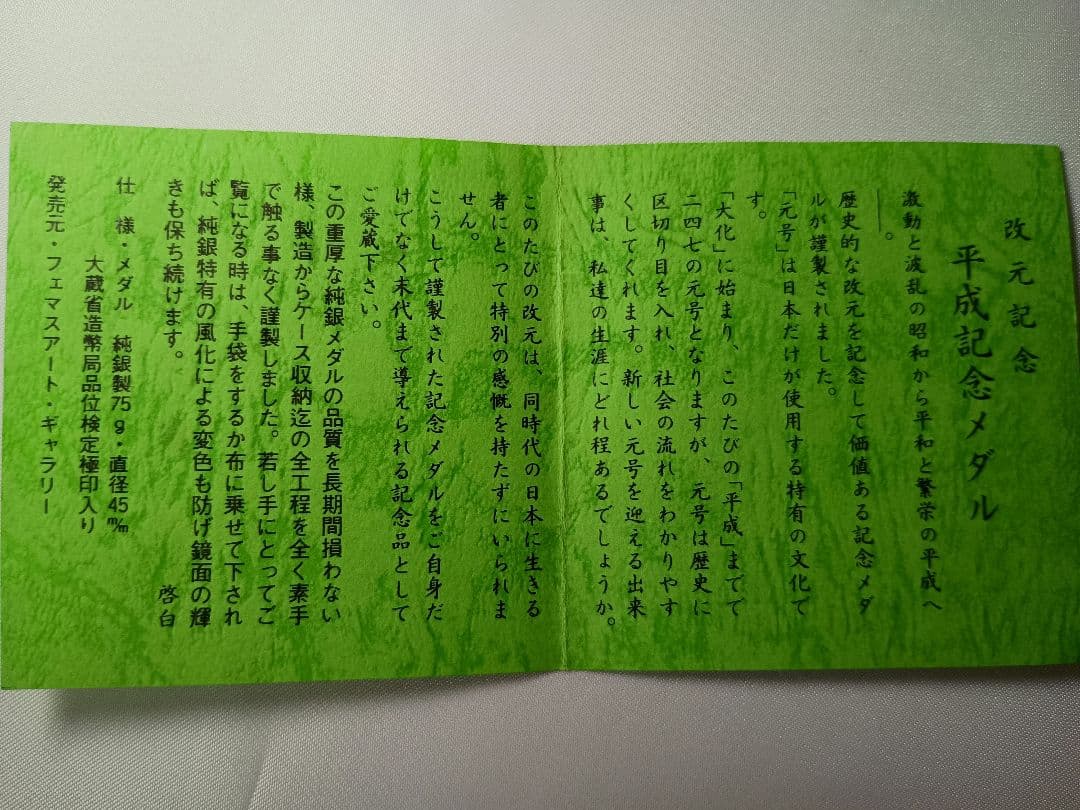 改元記念
平成記念メダル
激動と波乱の昭和から平和と繁栄の平成へ
――。
歴史的な改元を記念して価値ある記念メダ
ルが謹製されました。
「元号」は日本だけが使用する特有の文化で
す。
「大化」に始まり、このたびの「平成」までで
二四七の元号となりますが、元号は歴史に
区切り目を入れ、社会の流れをわかりやす
くしてくれます。新しい元号を迎える出来
事は、私達の生涯にどれ程あるでしょうか。
このたびの改元は、同時代の日本に生きる
者にとって特別の感慨を持たずにいられま
せん。
こうして謹製された記念メダルをご自身だ
けでなく末代まで導えられる記念品として
ご愛蔵下さい。
この重厚な純銀メダルの品質を長期間損わない
様、製造からケース収納迄の全工程を全く素手
で触る事なく謹製しました。若し手にとってご
覧になる時は、手袋をするか布に乗せて下され
ば、純銀特有の風化による変色も防げ鏡面の輝
きも保ち続けます。
啓白
仕 様・メダル 純銀製75g・直径45㎜
大蔵省造幣局品位検定極印入り
発売元・フェマスアート・ギャラリー